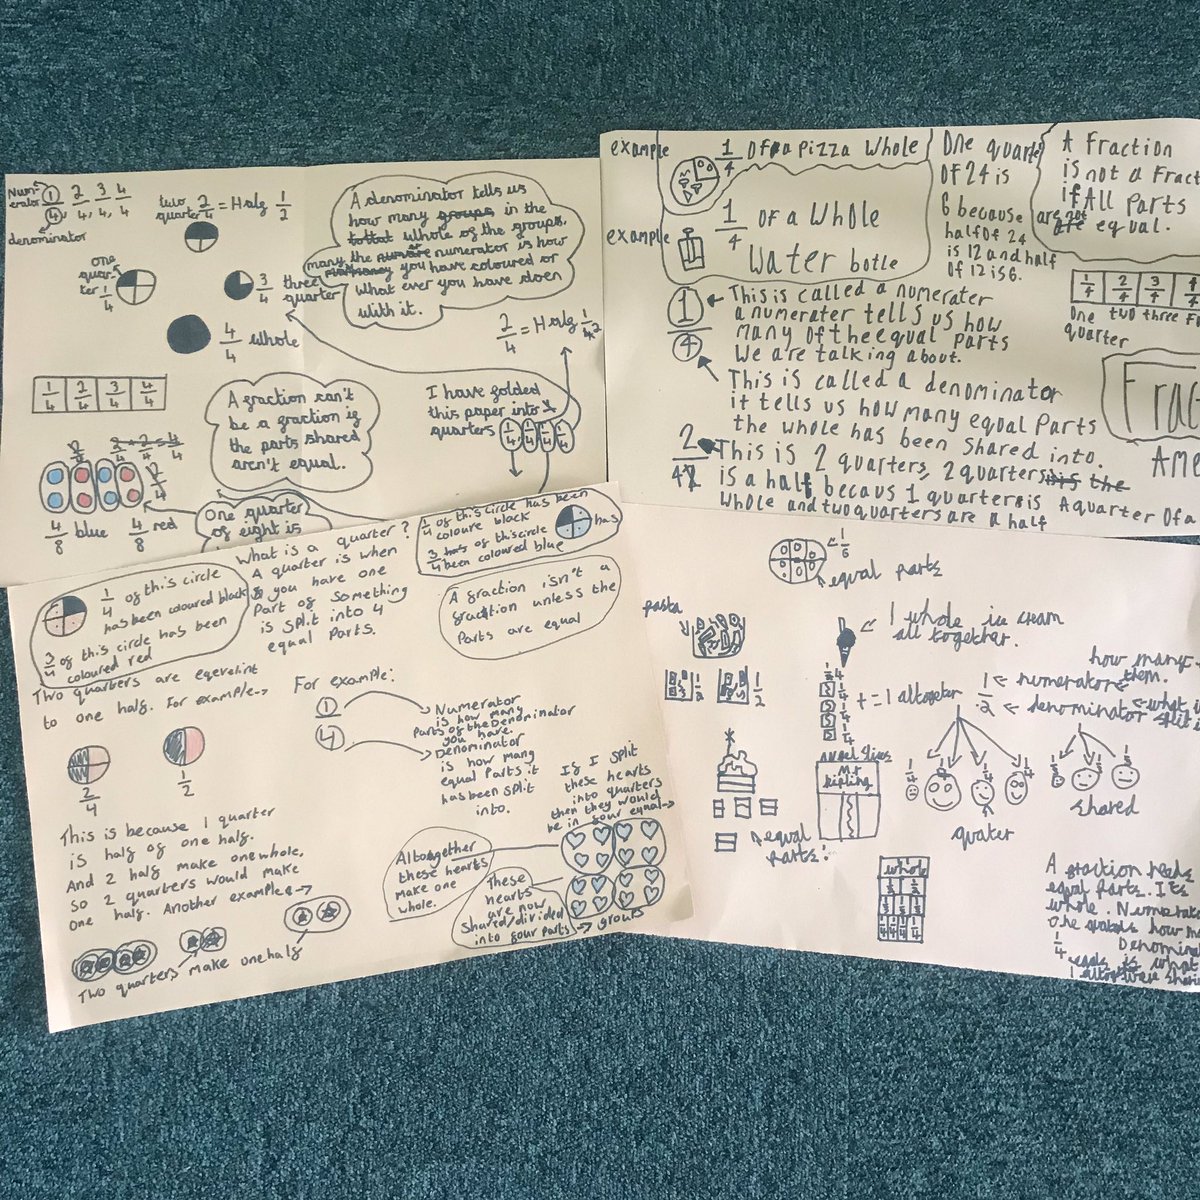 Num-
erator 1 2 3 4
4, 4, 4, 4
denominator
two 2/4 = Half 1/2
quarter
one
quar-
ter 1/4
3/4 three
quarter
4/4 whole
A denominator tells us
how many groups in the
tottal whole of the groups.
many the numerator is how
you have coloured or
what ever you have doen
with it.
2/4 = Half 1/2
1/4 2/4 3/4 4/4
A fraction can't
be a fraction if
the parts shared
aren't equal.
I have folded
this paper into
quarters 1/4 1/4 1/4 1/4
2/4
4/8 blue 4/8 red
One quarter
of eight is
example 1/4 Of a pizza Whole
example 1/4 of a Whole
Water botle
One quarte
Of 24 is
6 because
half Of 24
is 12 and half
Of 12 is 6.
A Fraction
is not a Fract
if All Parts
are not equal.
1/4 2/4 3/4 4/4
One two three Fo
quarter
Frac
Ame
1/4
This is called a numerater
a numerater tells us how
many Of the equal parts
We are talking about.
This is called a denomenator
it tells us how many equal Parts
the whole has been Shared into.
2/4
This is 2 quarters, 2 quarters is the
is a half becaus 1 quarters is A quarter Of a
Whole and two quarters are a half
1/4 of this circle
has been coloured black
3/4 of this circle has been
coloured red
What is a quarter?
A quarter is when
you have one
Part of something
is split into 4
equal Parts.
1/4 of this circle has been
coloure black
3/4 has of this circle has
been coloured blue
A fraction isn't a
fraction unless the
Parts are equal
Two quarters are eqevelint
to one half. For example→
2/4
1/2
This is because 1 quarter
is half of one half.
And 2 half make one whole,
so 2 quarters would make
one half. Another example→
Two quarters make one half
For example:
1/4
Numerator
is how many
Parts of the Denominator
you have.
Denominator
is how many
equal Parts it
has been split
into.
If I split
these hearts
into quarters
then they would
be in four equal→
groups
Altogether
these hearts
make one
whole.
These
hearts
are now
shared/divided
into four parts→
1/6
equal parts
pasta
1/2 1/2
1 whole ice cream
all together.
1/4
1/4
1/4
1/4
+ = 1 altogeter
how many
them.
1/2
numerator
denominator
angel slices
Mr
kipling
equal
parts
1/4 1/4 1/4 1/4
quater
1/3 1/3 1/3
shared
whole
1/2 1/2
1/4 1/4 1/4 1/4
A fraction needs
equal parts. Its
whole. Numerat
how m
Denomin
1/4
what